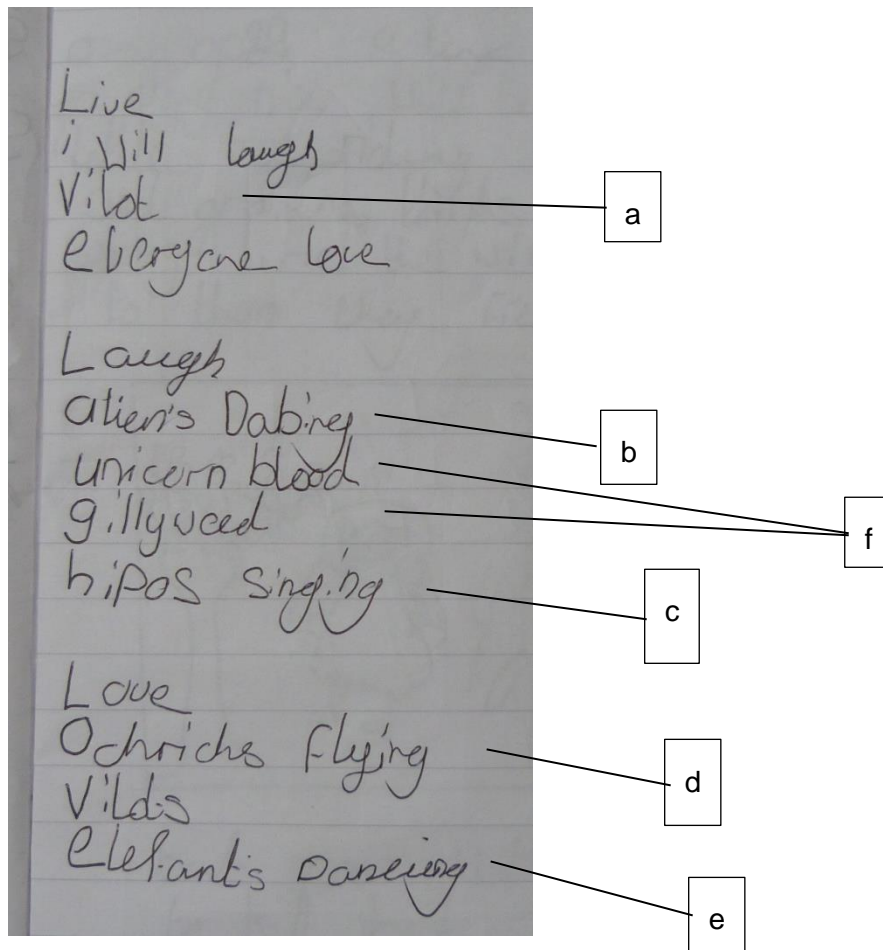 Live
i Will laugh
Vilot
a
everyone love
Laugh
alien's Dabing
b
unicorn blood
gillyweed
f
hipos singing
c
Love
Ochrichs flying
d
elefant's Dancing
e